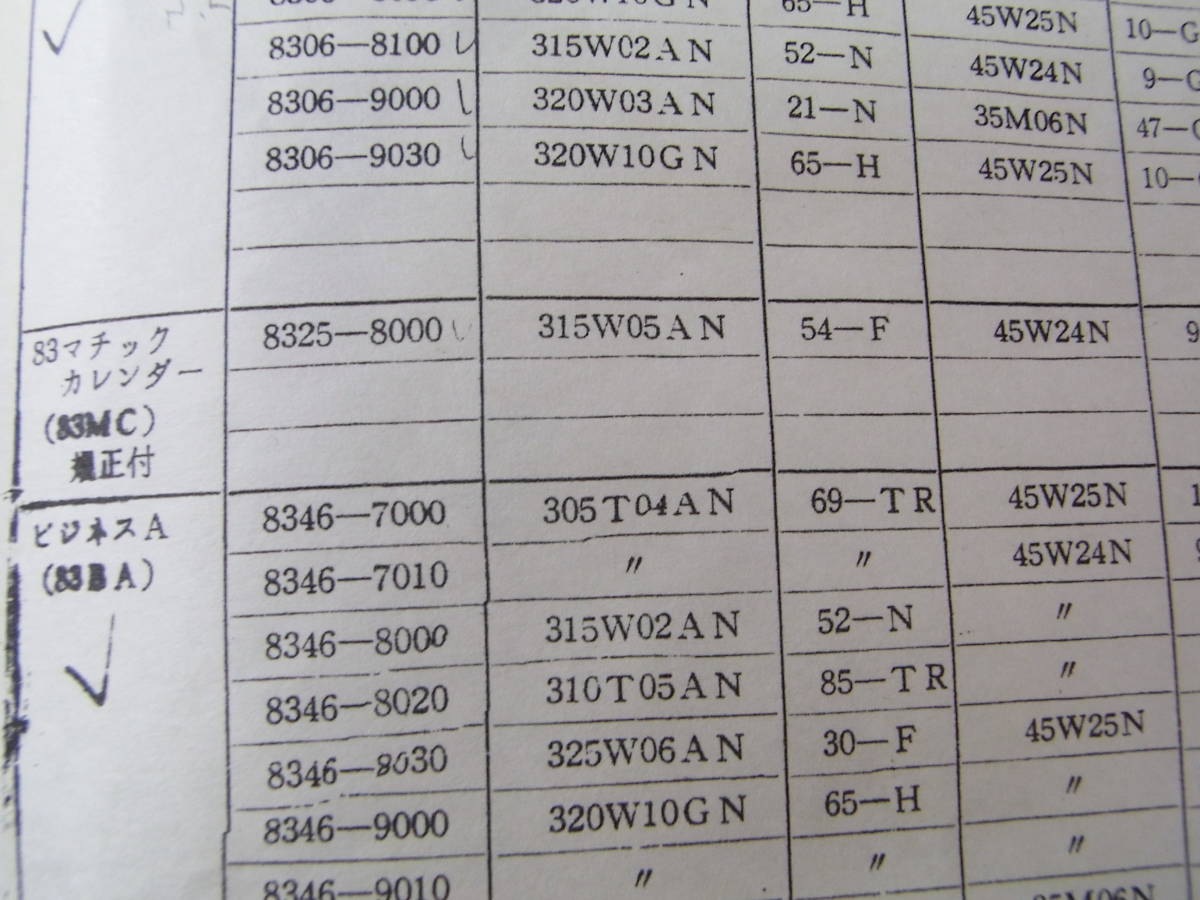 320W10GN 65—H 45W25N 10—G
8306—8100 315W02AN 52—N 45W24N 9—G
8306—9000 320W03AN 21—N 35M06N 47—
8306—9030 320W10GN 65—H 45W25N 10—
83マチック
カレンダー
(83MC)
規正付
8325—8000 315W05AN 54—F 45W24N 9
ビジネスA
(83BA)
8346—7000 305T04AN 69—TR 45W25N 1
8346—7010 〃 〃 45W24N
8346—8000 315W02AN 52—N 〃
8346—8020 310T05AN 85—TR 〃
8346—8030 325W06AN 30—F 45W25N
8346—9000 320W10GN 65—H 〃
8346—9010 〃 〃 〃
35M06N